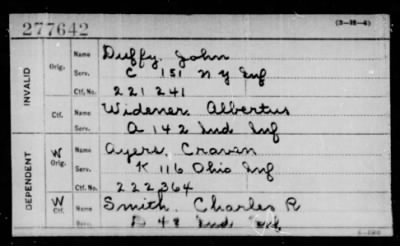 277642 (3-18-6)
INVALID
Orig. Name Duffy, John
Serv. C 151 N Y Inf
Ctf. No. 221241
Ctf. Name Widener, Albertus
Serv. A 142 Ind Inf
DEPENDENT
W Orig. Name Ayers, Craven
Serv. K 116 Ohio Inf
Ctf. No. 222364
W Ctf. Name Smith, Charles R
Serv. D 48 Ind Inf